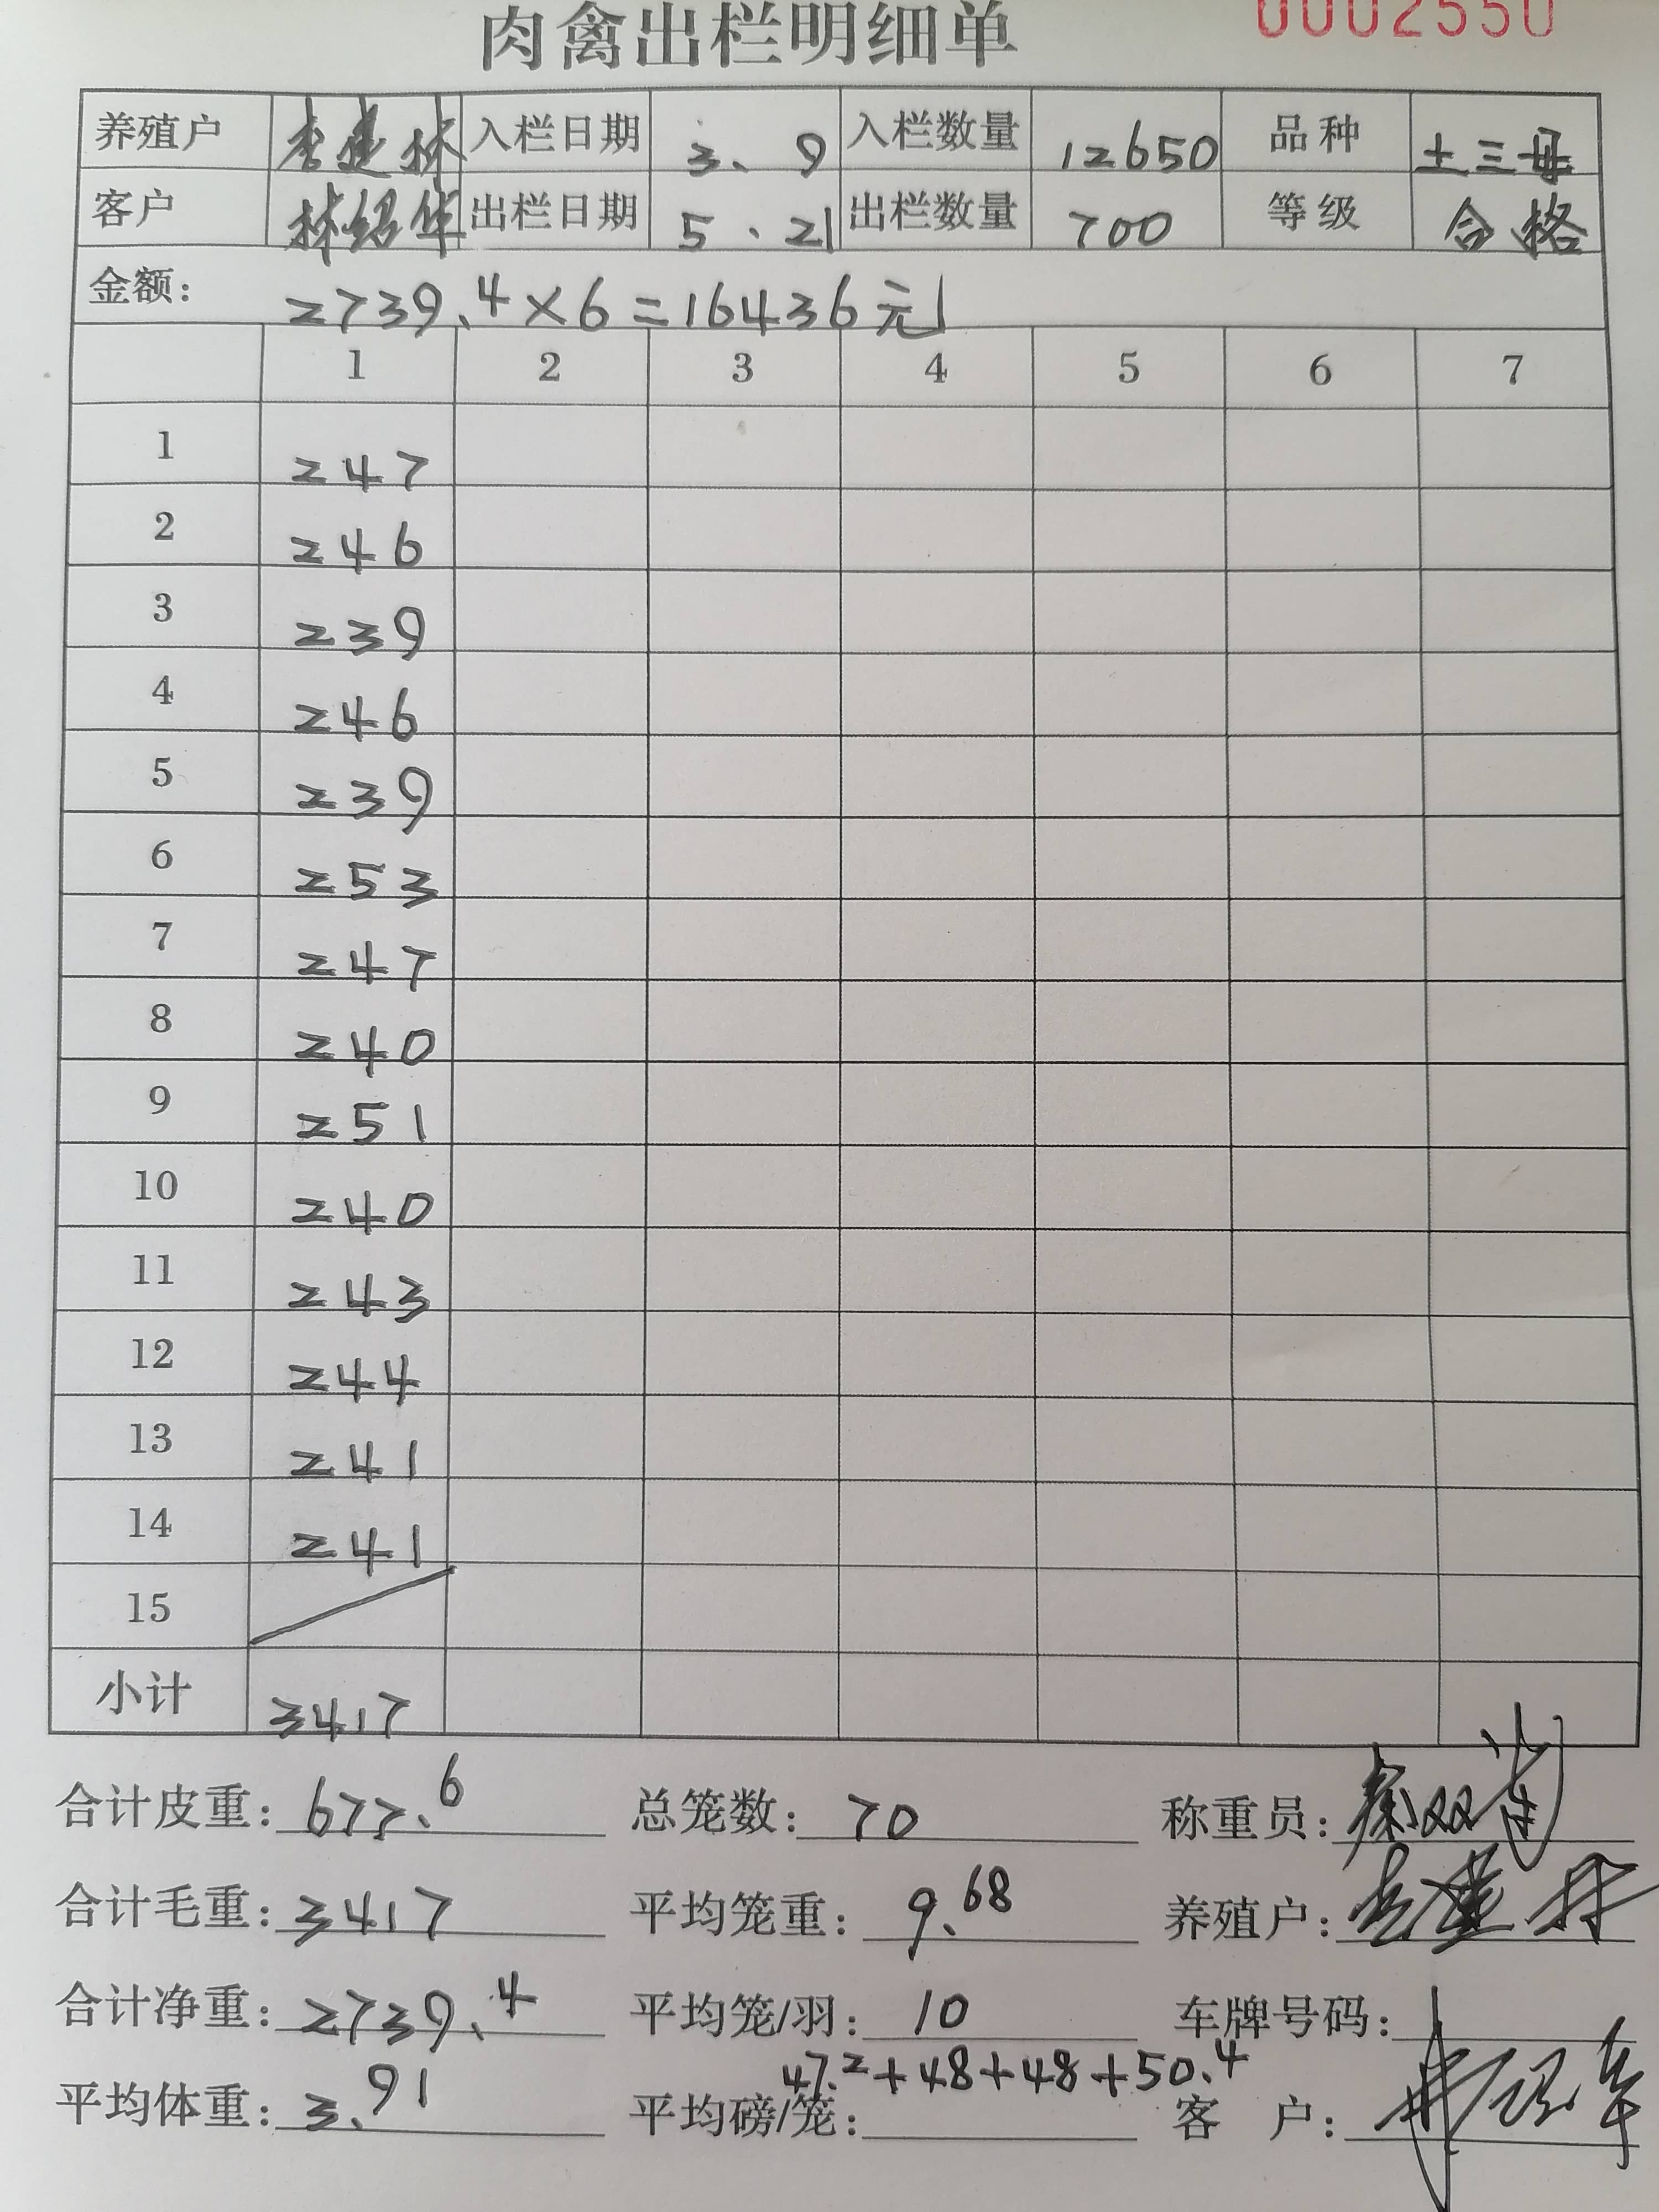 肉禽出栏明细单 0002550
养殖户 李建林 入栏日期 3、9 入栏数量 12650 品种 土三母
客户 林绍华 出栏日期 5、21 出栏数量 700 等级 合格
金额: 2739.4×6=16436元
1 2 3 4 5 6 7
1 247
2 246
3 239
4 246
5 239
6 253
7 247
8 240
9 251
10 240
11 243
12 244
13 241
14 241
15
小计 3417
合计皮重: 677.6 总笼数: 70 称重员:
合计毛重: 3417 平均笼重: 9.68 养殖户:
合计净重: 2739.4 平均笼/羽: 10 车牌号码:
47.2+48+48+50.4
平均体重: 3.91 平均磅/笼: 客户: